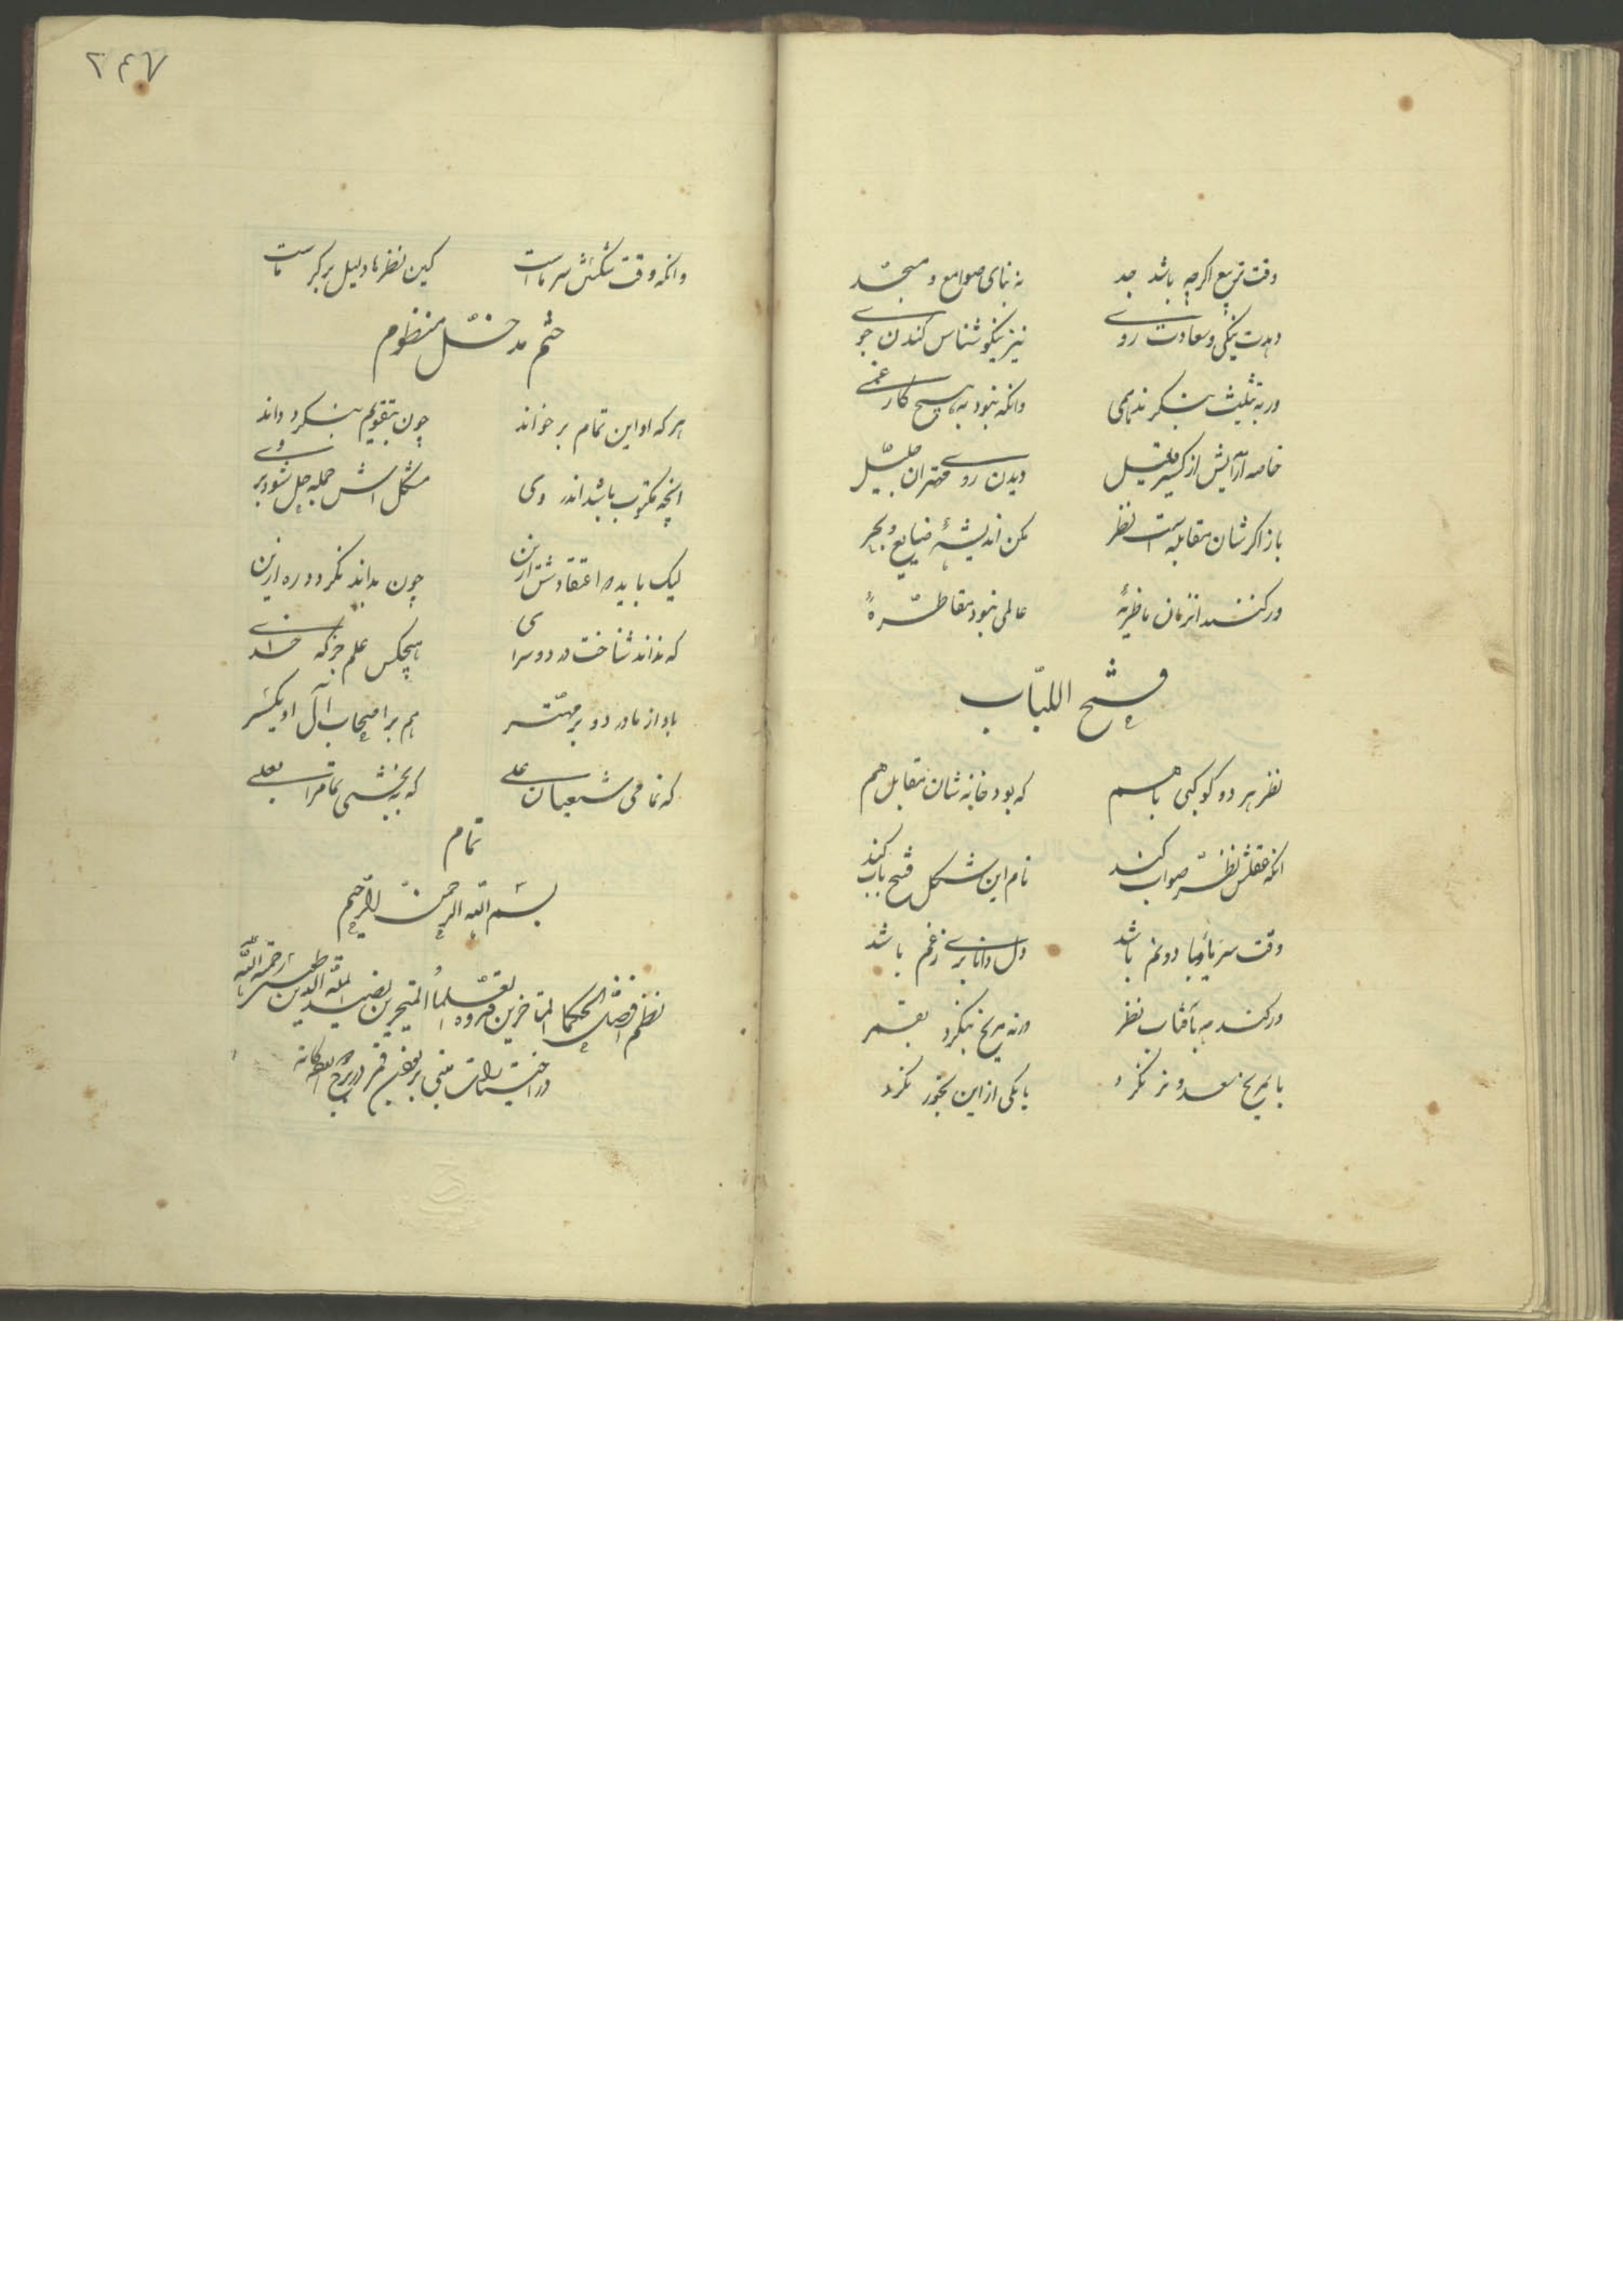 وقت تربیع اگرچه باشد جد نه بنای صوامع و مسجد
دهدت نیکی و سعادت روی نیز نیکو شناس کندن جوی
ور به تثلیث بنگرند همی وانکه نبود به هیچ کار غمی
خاصه آرایش از کسیر دیدن روی مهتران جلیل
باز اگرشان مقابله است نظر مکن اندیشهٔ ضیایع و بحر
ور کنند از زمان عالمی نبود
فتح اللباب
نظر هر دو کوکبی باهم که بود خانه شان مقابل هم
انکه عقلش نظر صواب کند نام این شکل فتح باب کند
وقت سرما و یا دو نم باشد دل دانا بری ز غم باشد
ور کند مه بآفتاب نظر ورنه مریخ بنگرد بقمر
با مریخ سعد و نر نگرد یا یکی از این بخور نگرد
۲۴۷
وانکه وقت شکش سرماست کین نظرها دلیل بر گرماست
ختم مدخل منظوم
هرکه او این تمام بر خواند چون بتقویم بنگرد داند
آنچه مکتوب باشد اندر وی مشکل اش جمله حل شود بر وی
لیک باید که اعتقادش ازین چون بداند نگردد ره ازین
که نداند شناخت در دو سرای هیچکس علم جز که خدای
باد از ما درود بر مهتر هم بر اصحاب آل او یکسر
که تمامی شیعیان علی که ببخشی تمامرا بعلی
تمام
بسم الله الرحمن الرحیم
نظم افضل الحکما المتأخرین قدوه العلماء المتبحرین نصیر المله والدین طوسی رحمه الله
در اختیارات مبنی بر بودن قمر در بروج